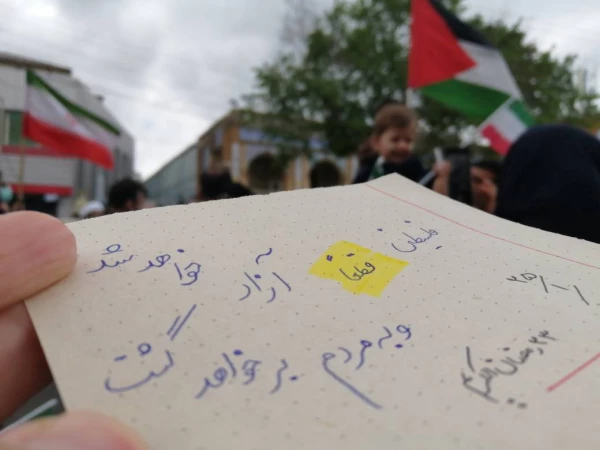 فلسطین قطعاً آزاد خواهد شد
و به مردم بر خواهد گشت
۲۵/۰۱/
۲۳ رمضان الکریم